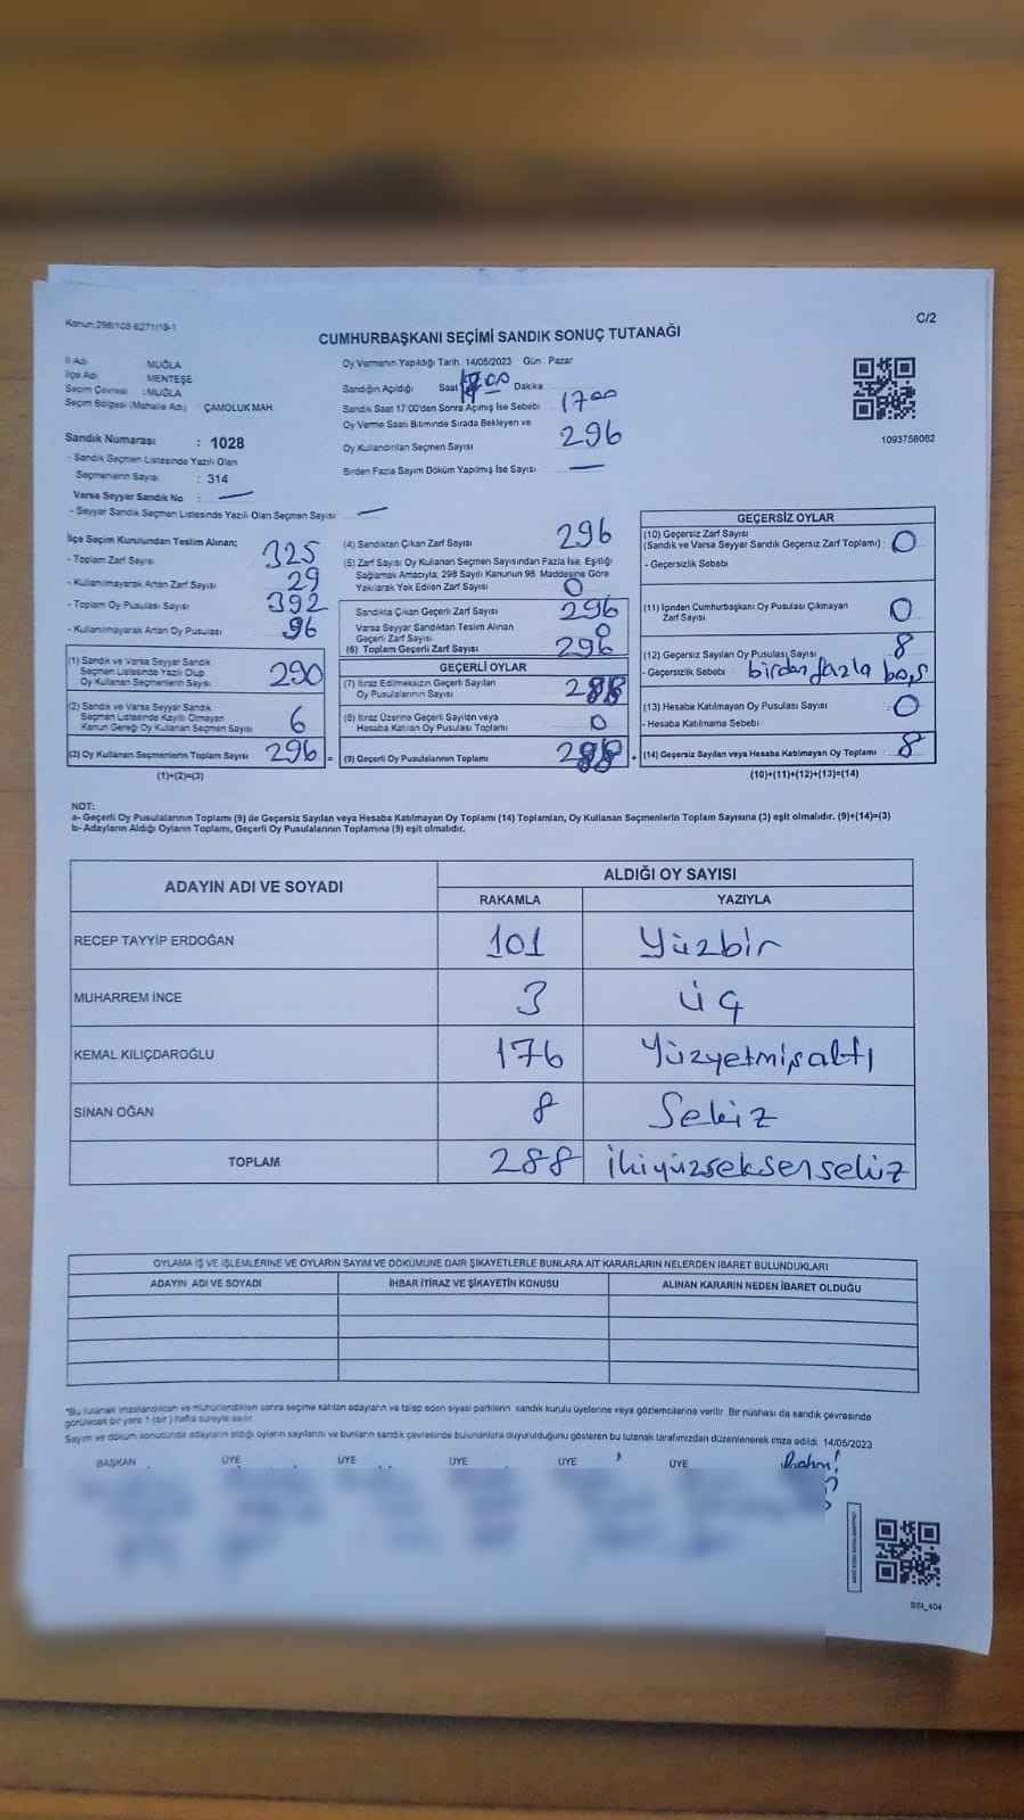 C/2
CUMHURBAŞKANI SEÇİMİ SANDIK SONUÇ TUTANAĞI
İl Adı MUĞLA
İlçe Adı MENTEŞE
Seçim Çevresi : MUĞLA
Seçim Bölgesi (Mahalle Adı) ÇAMOLUK MAH
Sandık Numarası : 1028
- Sandık Seçmen Listesinde Yazılı Olan
Seçmenlerin Sayısı : 314
Varsa Seyyar Sandık No : —
- Seyyar Sandık Seçmen Listesinde Yazılı Olan Seçmen Sayısı —
Oy Vermenin Yapıldığı Tarih 14/05/2023 Gün Pazar
Sandığın Açıldığı Saat Dakika
Sandık Saat 17:00'den Sonra Açımış İse Sebebi 1700
Oy Verme Saati Bitiminde Sırada Bekleyen ve
Oy Kullandırılan Seçmen Sayısı 296
Birden Fazla Sayım Döküm Yapılmış İse Sayısı —
1093758082
İlçe Seçim Kurulundan Teslim Alınan;
- Toplam Zarf Sayısı 325
- Kullanılmayarak Artan Zarf Sayısı 29
- Toplam Oy Pusulası Sayısı 392
- Kullanılmayarak Artan Oy Pusulası 96
(1) Sandık ve Varsa Seyyar Sandık
Seçmen Listesinde Yazılı Olup
Oy Kullanan Seçmenlerin Sayısı 290
(2) Sandık ve Varsa Seyyar Sandık
Seçmen Listesinde Kayıtlı Olmayan
Kanun Gereği Oy Kullanan Seçmen Sayısı 6
(3) Oy Kullanan Seçmenlerin Toplam Sayısı 296 =
(1)+(2)=(3)
(4) Sandıktan Çıkan Zarf Sayısı 296
(5) Zarf Sayısı Oy Kullanan Seçmen Sayısından Fazla İse, Eşitliği
Sağlamak Amacıyla, 298 Sayılı Kanunun 98. Maddesine Göre
Yakılarak Yok Edilen Zarf Sayısı 0
Sandıkta Çıkan Geçerli Zarf Sayısı 296
Varsa Seyyar Sandıktan Teslim Alınan
Geçerli Zarf Sayısı 0
(6) Toplam Geçerli Zarf Sayısı 296
GEÇERLİ OYLAR
(7) İtiraz Edilmeksizin Geçerli Sayılan
Oy Pusulalarının Sayısı 288
(8) İtiraz Üzerine Geçerli Sayılan veya
Hesaba Katılan Oy Pusulası Toplamı 0
(9) Geçerli Oy Pusulalarının Toplamı 288 +
GEÇERSİZ OYLAR
(10) Geçersiz Zarf Sayısı
(Sandık ve Varsa Seyyar Sandık Geçersiz Zarf Toplamı) 0
- Geçersizlik Sebebi
(11) İçinden Cumhurbaşkanı Oy Pusulası Çıkmayan
Zarf Sayısı 0
(12) Geçersiz Sayılan Oy Pusulası Sayısı 8
- Geçersizlik Sebebi birden fazla boş
(13) Hesaba Katılmayan Oy Pusulası Sayısı 0
- Hesaba Katılmama Sebebi
(14) Geçersiz Sayılan veya Hesaba Katılmayan Oy Toplamı 8
(10)+(11)+(12)+(13)=(14)
NOT:
a- Geçerli Oy Pusulalarının Toplamı (9) ile Geçersiz Sayılan veya Hesaba Katılmayan Oy Toplamı (14) Toplamları, Oy Kullanan Seçmenlerin Toplam Sayısına (3) eşit olmalıdır. (9)+(14)=(3)
b- Adayların Aldığı Oyların Toplamı, Geçerli Oy Pusulalarının Toplamına (9) eşit olmalıdır.
ADAYIN ADI VE SOYADI ALDIĞI OY SAYISI
RAKAMLA YAZIYLA
RECEP TAYYİP ERDOĞAN 101 Yüzbir
MUHARREM İNCE 3 üç
KEMAL KILIÇDAROĞLU 176 Yüzyetmişaltı
SİNAN OĞAN 8 Sekiz
TOPLAM 288 ikiyüzseksensekiz
OYLAMA İŞ VE İŞLEMLERİNE VE OYLARIN SAYIM VE DÖKÜMÜNE DAİR ŞİKAYETLERLE BUNLARA AİT KARARLARIN NELERDEN İBARET BULUNDUKLARI
ADAYIN ADI VE SOYADI İHBAR İTİRAZ VE ŞİKAYETİN KONUSU ALINAN KARARIN NEDEN İBARET OLDUĞU
*Bu tutanak imzalandıktan ve mühürlendikten sonra seçime katılan adayların ve talep eden siyasi partilerin sandık kurulu üyelerine veya gözlemcilerine verilir. Bir nüshası da sandık çevresinde
görülecek bir yere 1 (bir) hafta süreyle asılır
Sayım ve döküm sonucunda adayların aldığı oyların sayılarını ve bunların sandık çevresinde bulunanlara duyurulduğunu gösteren bu tutanak tarafımızdan düzenlenerek imza edildi. 14/05/2023
BAŞKAN ÜYE ÜYE ÜYE ÜYE ÜYE